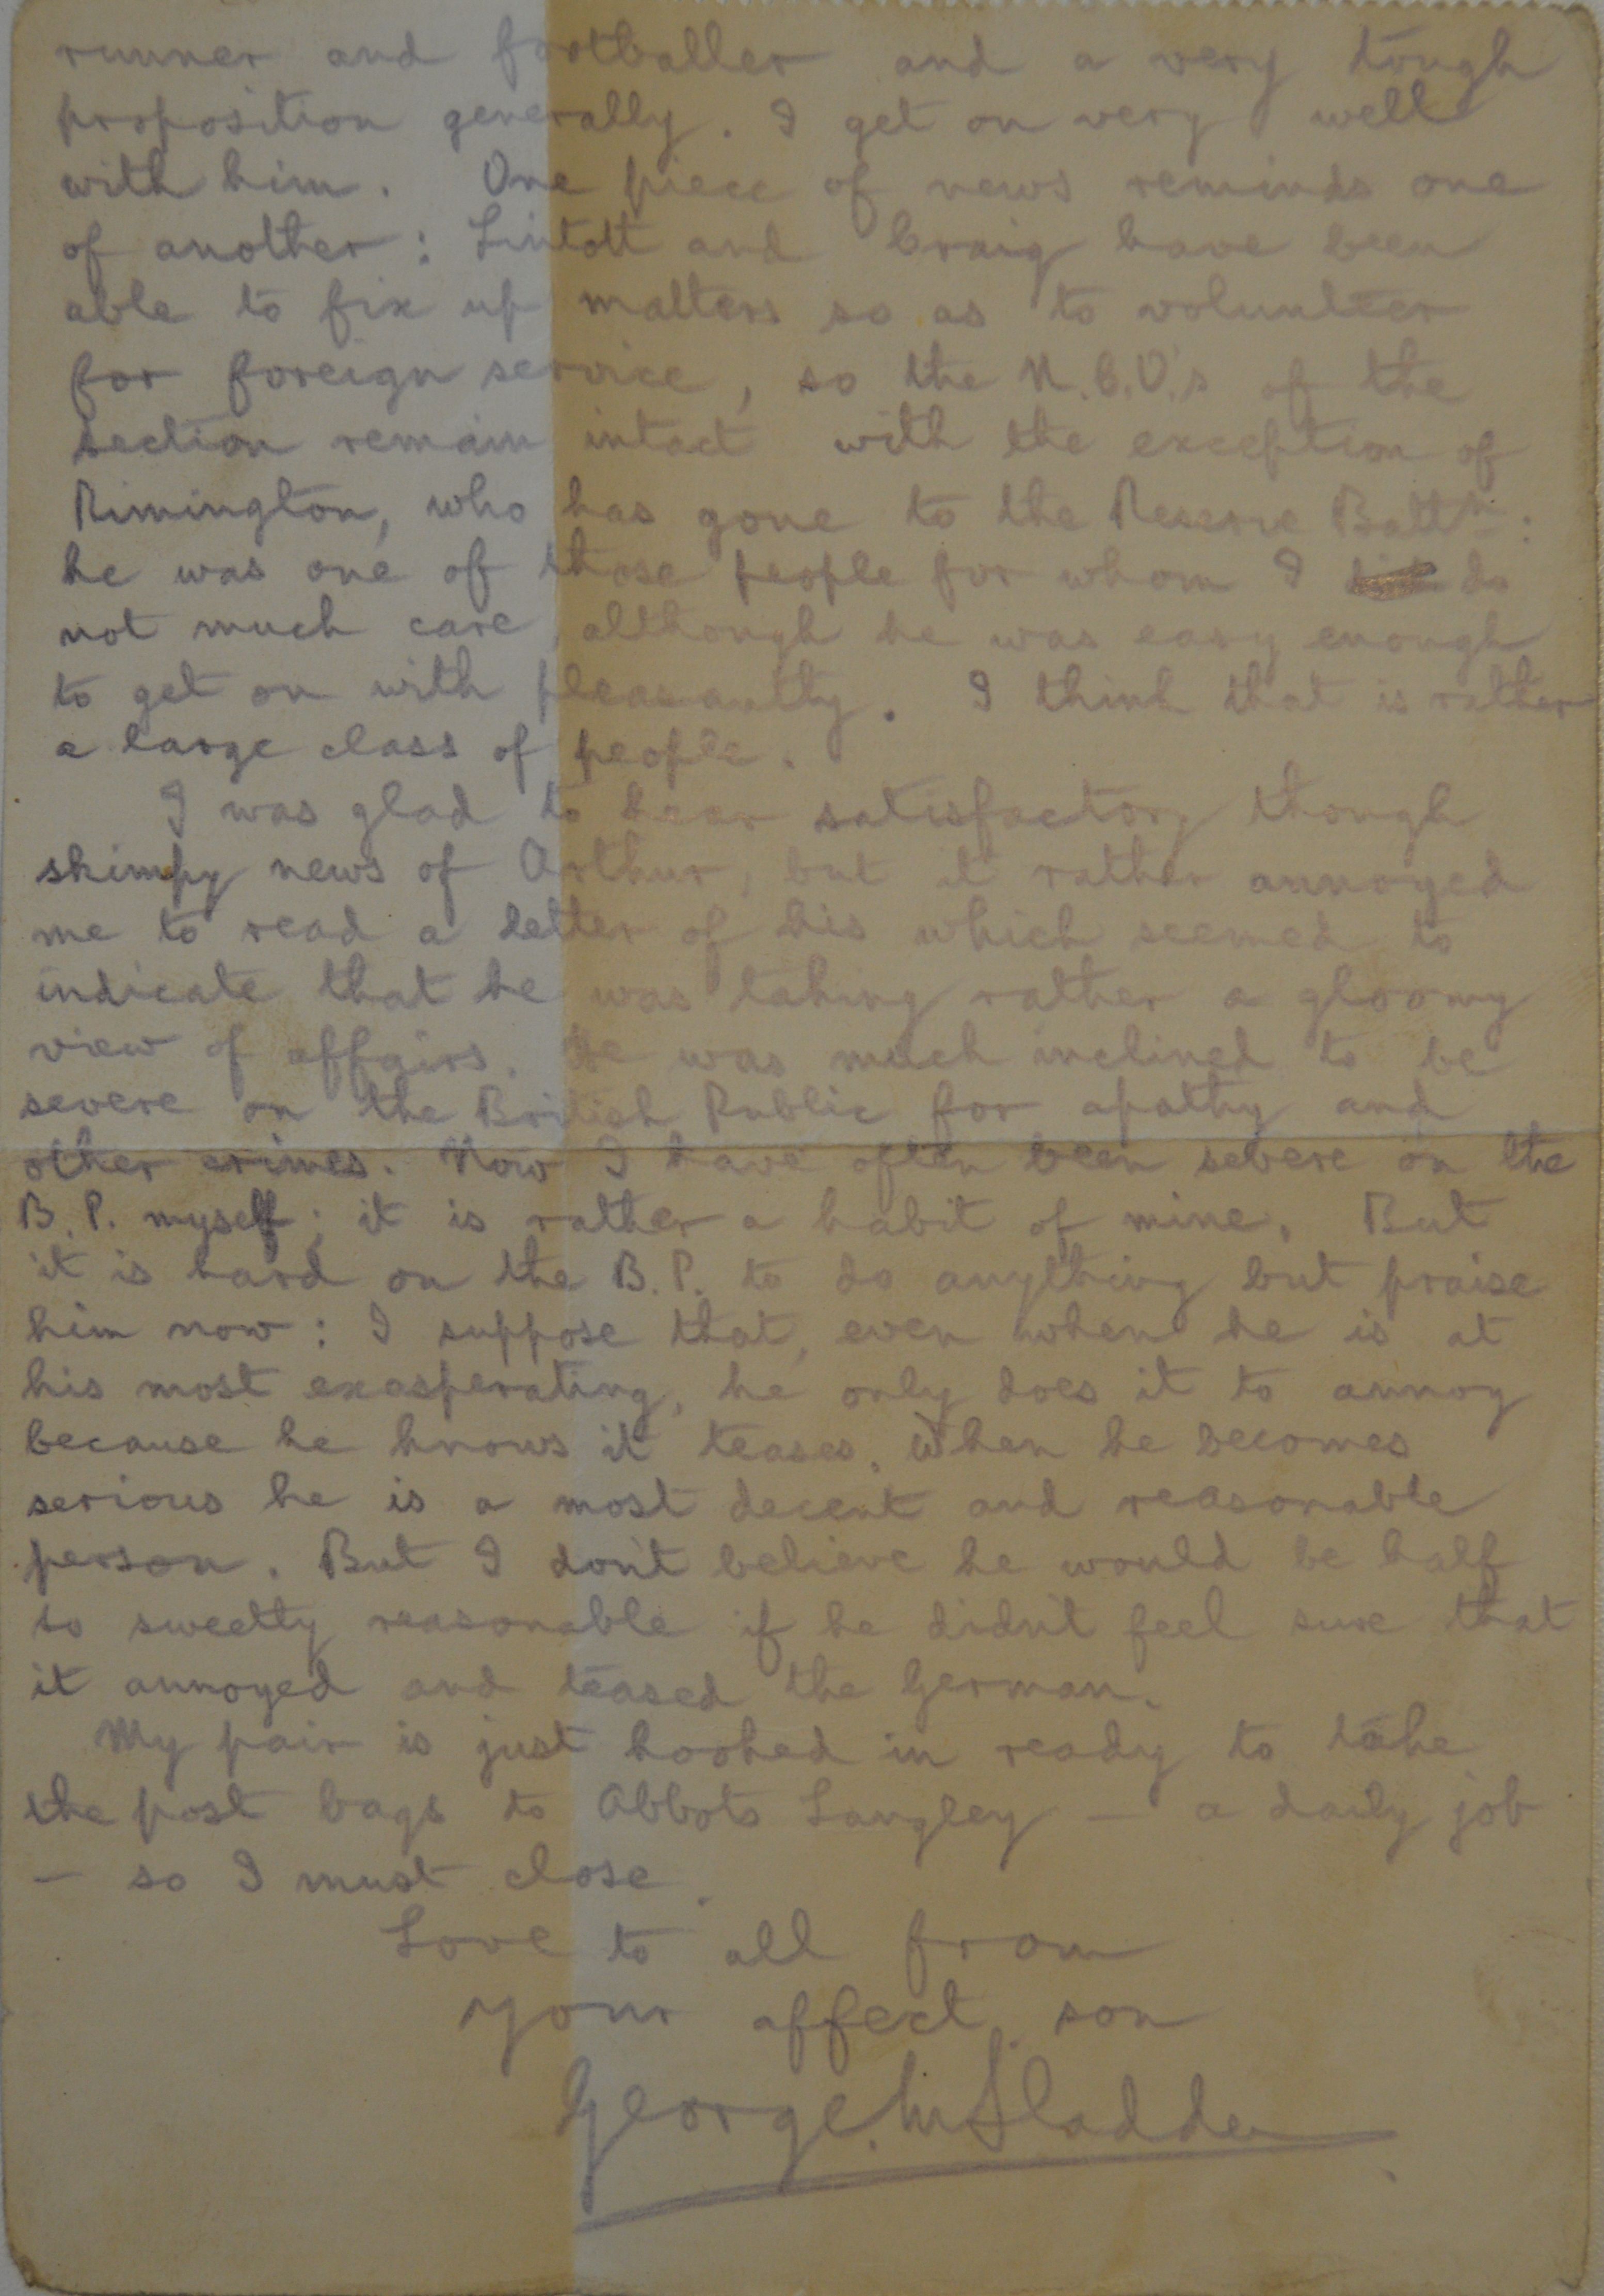 runner and footballer and a very tough
proposition generally. I get on very well
with him. One piece of news reminds one
of another: Lintott and Craig have been
able to fix up matters so as to volunteer
for foreign service, so the N.C.O.'s of the
section remain intact with the exception of
Rimington, who has gone to the Reserve Battn:
he was one of those people for whom I do
not much care, although he was easy enough
to get on with pleasantly. I think that is rather
a large class of people.
I was glad to hear satisfactory though
skimpy news of Arthur, but it rather annoyed
me to read a letter of his which seemed to
indicate that he was taking rather a gloomy
view of affairs. He was much inclined to be
severe on the British Public for apathy and
other crimes. Now I have often been severe on the
B.P. myself; it is rather a habit of mine. But
it is hard on the B.P. to do anything but praise
him now: I suppose that, even when he is at
his most exasperating, he only does it to annoy
because he knows it teases. When he becomes
serious he is a most decent and reasonable
person. But I don't believe he would be half
so sweetly reasonable if he didn't feel sure that
it annoyed and teased the German.
My pair is just hooked in ready to take
the post bags to Abbots Langley — a daily job
— so I must close.
Love to all from
your affect. son
George. W Sladden